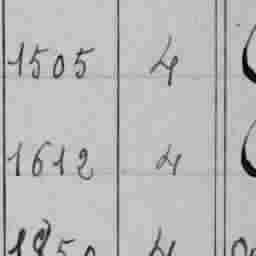 1505 4
1612 4
1850 4